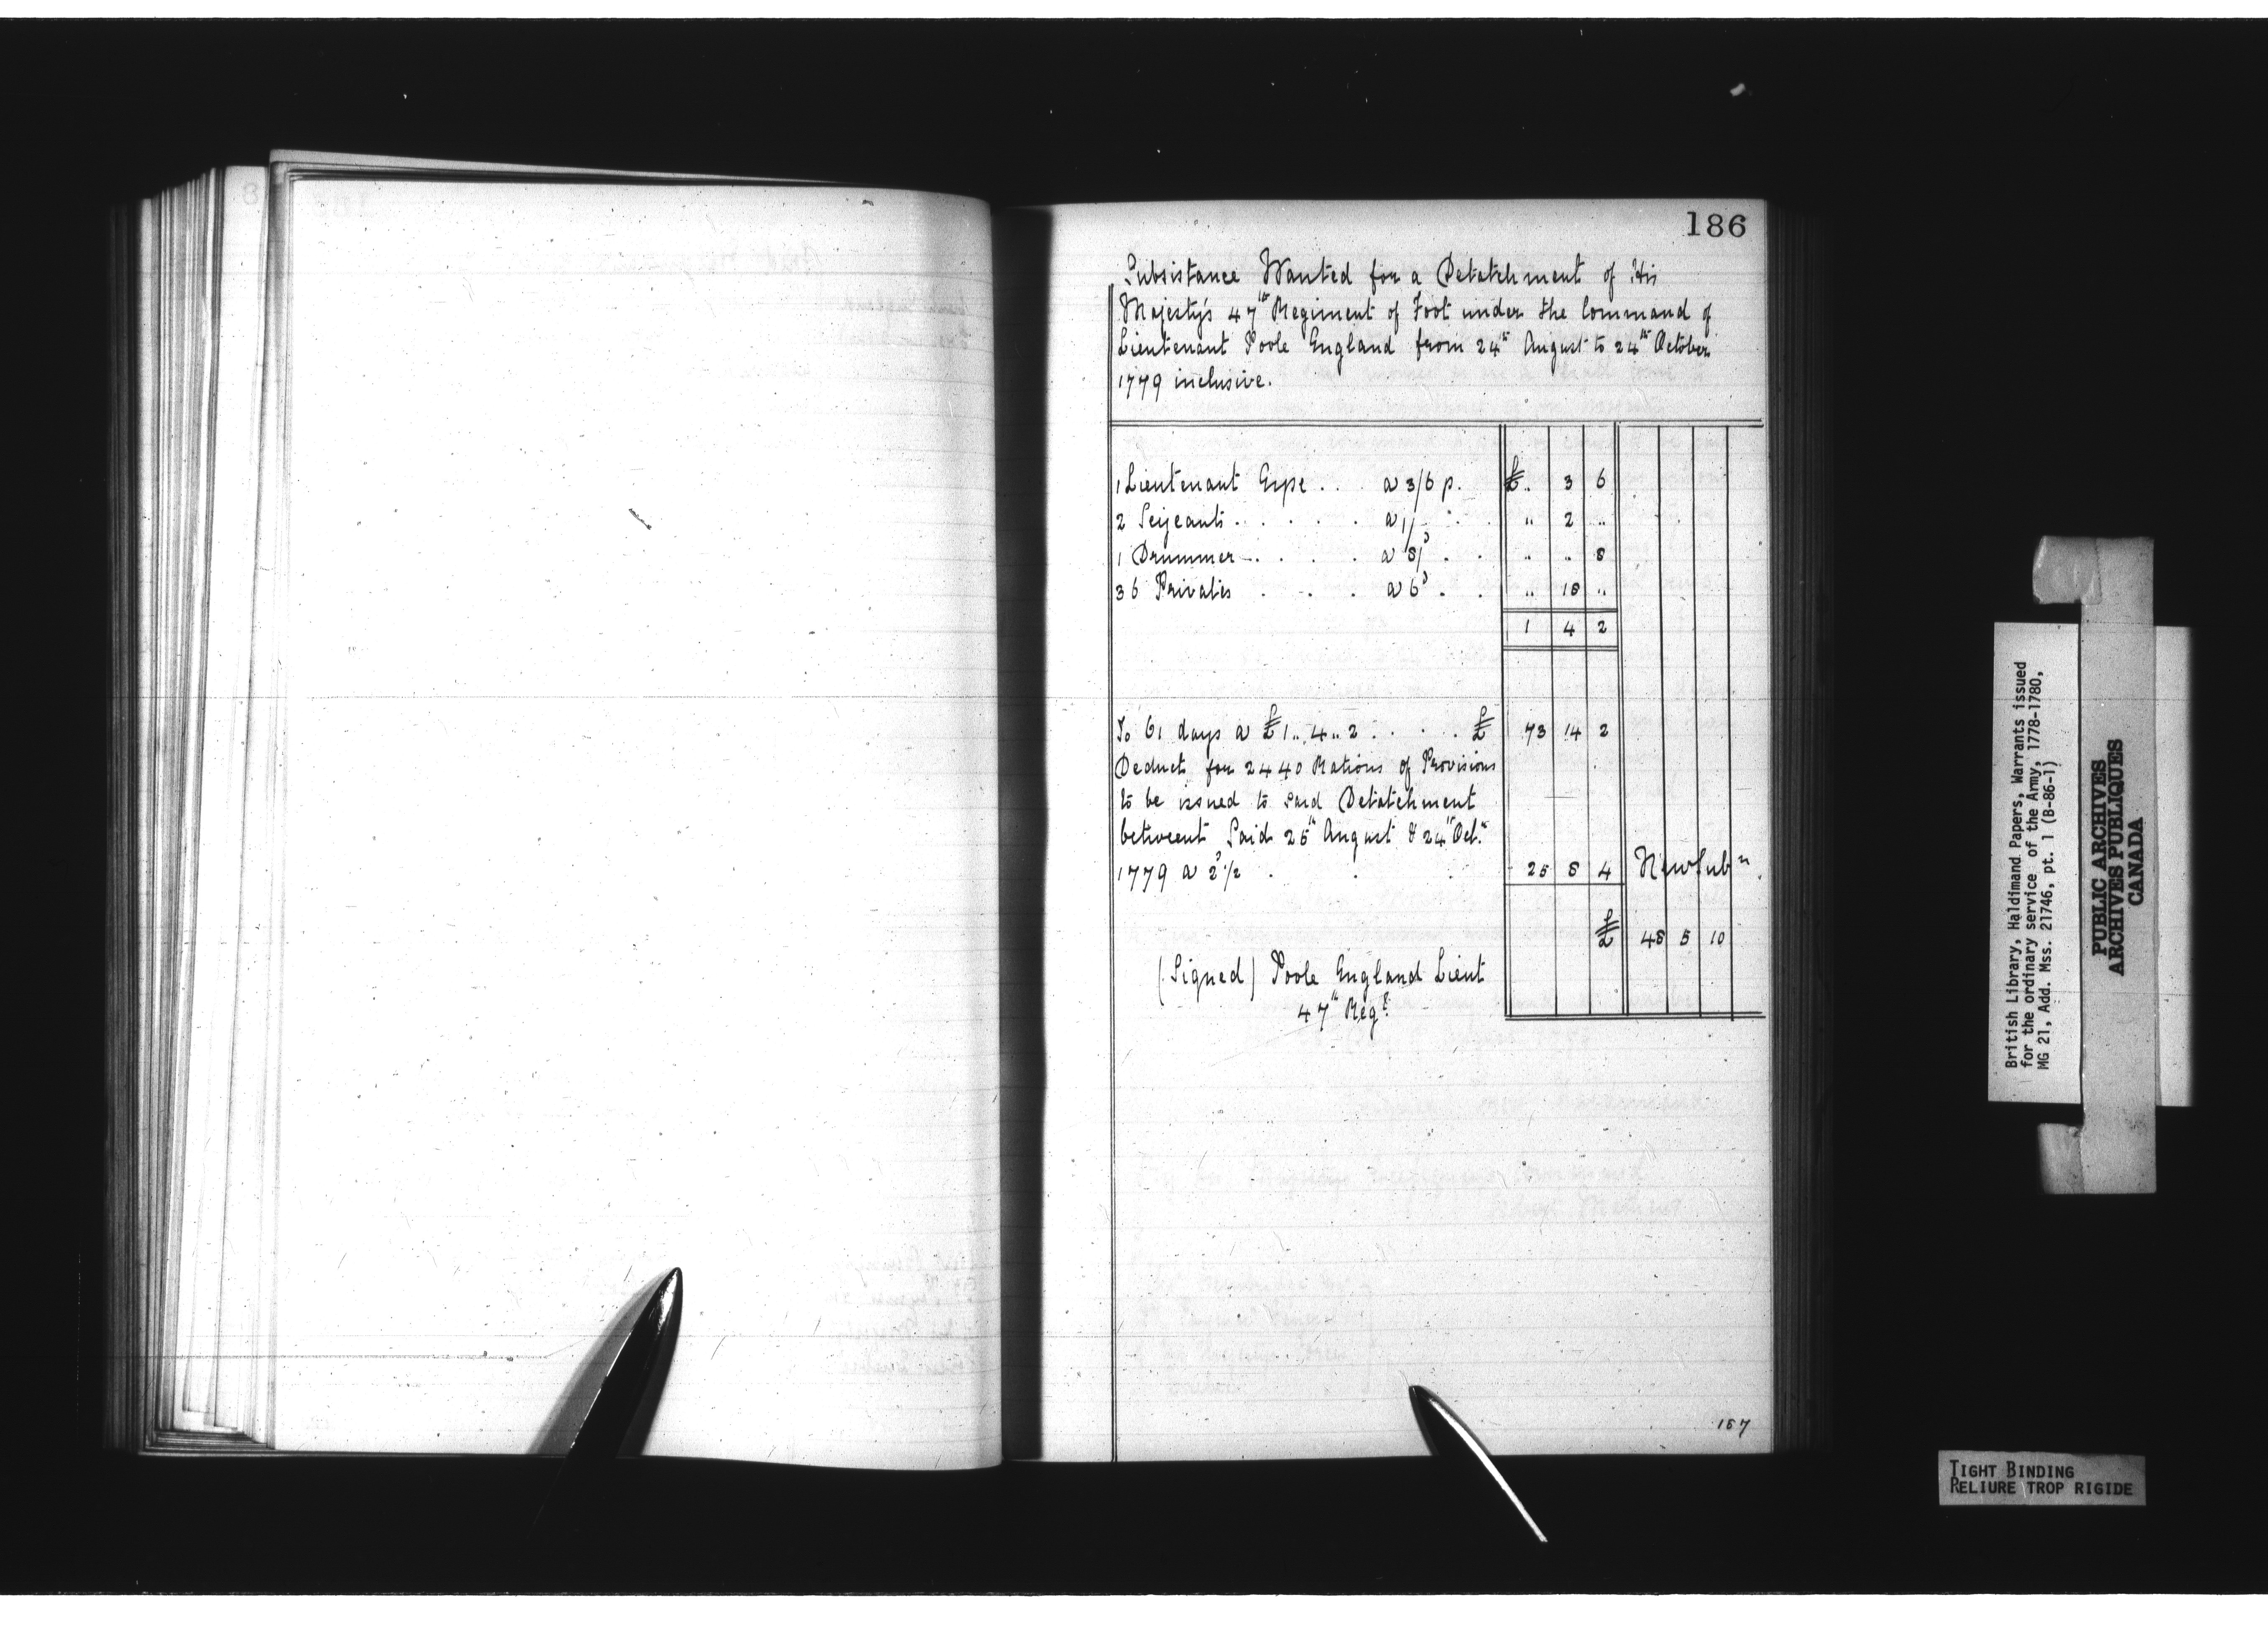 186
Subsistance Wanted for a Detatchment of His
Majesty's 47th Regiment of Foot under the Command of
Lieutenant Poole England from 24th August to 24th October
1779 inclusive.
1 Lieutenant Grpe . . . a 3/6 p. £ .. 3 6
2 Serjeants . . . . . a 1/- . . " 2 ..
1 Drummer . . . . a 8d . . .. .. 8
36 Privates . . . a 6d . . .. 18 ..
1 4 2
To 61 days a £1..4..2 . . . . £ 73 14 2
Deduct for 2440 Rations of Provisions
to be issued to said Detatchment
betweent Said 25th August & 24th Octr
1779 a 2d ½ . . . 25 8 4 New Subn
£ 48 5 10
(Signed) Poole England Lieut
47th Regt
187
British Library, Haldimand Papers, Warrants issued
for the ordinary service of the Army, 1778-1780,
MG 21, Add. Mss. 21746, pt. 1 (B-86-1)
PUBLIC ARCHIVES
ARCHIVES PUBLIQUES
CANADA
TIGHT BINDING
RELIURE TROP RIGIDE